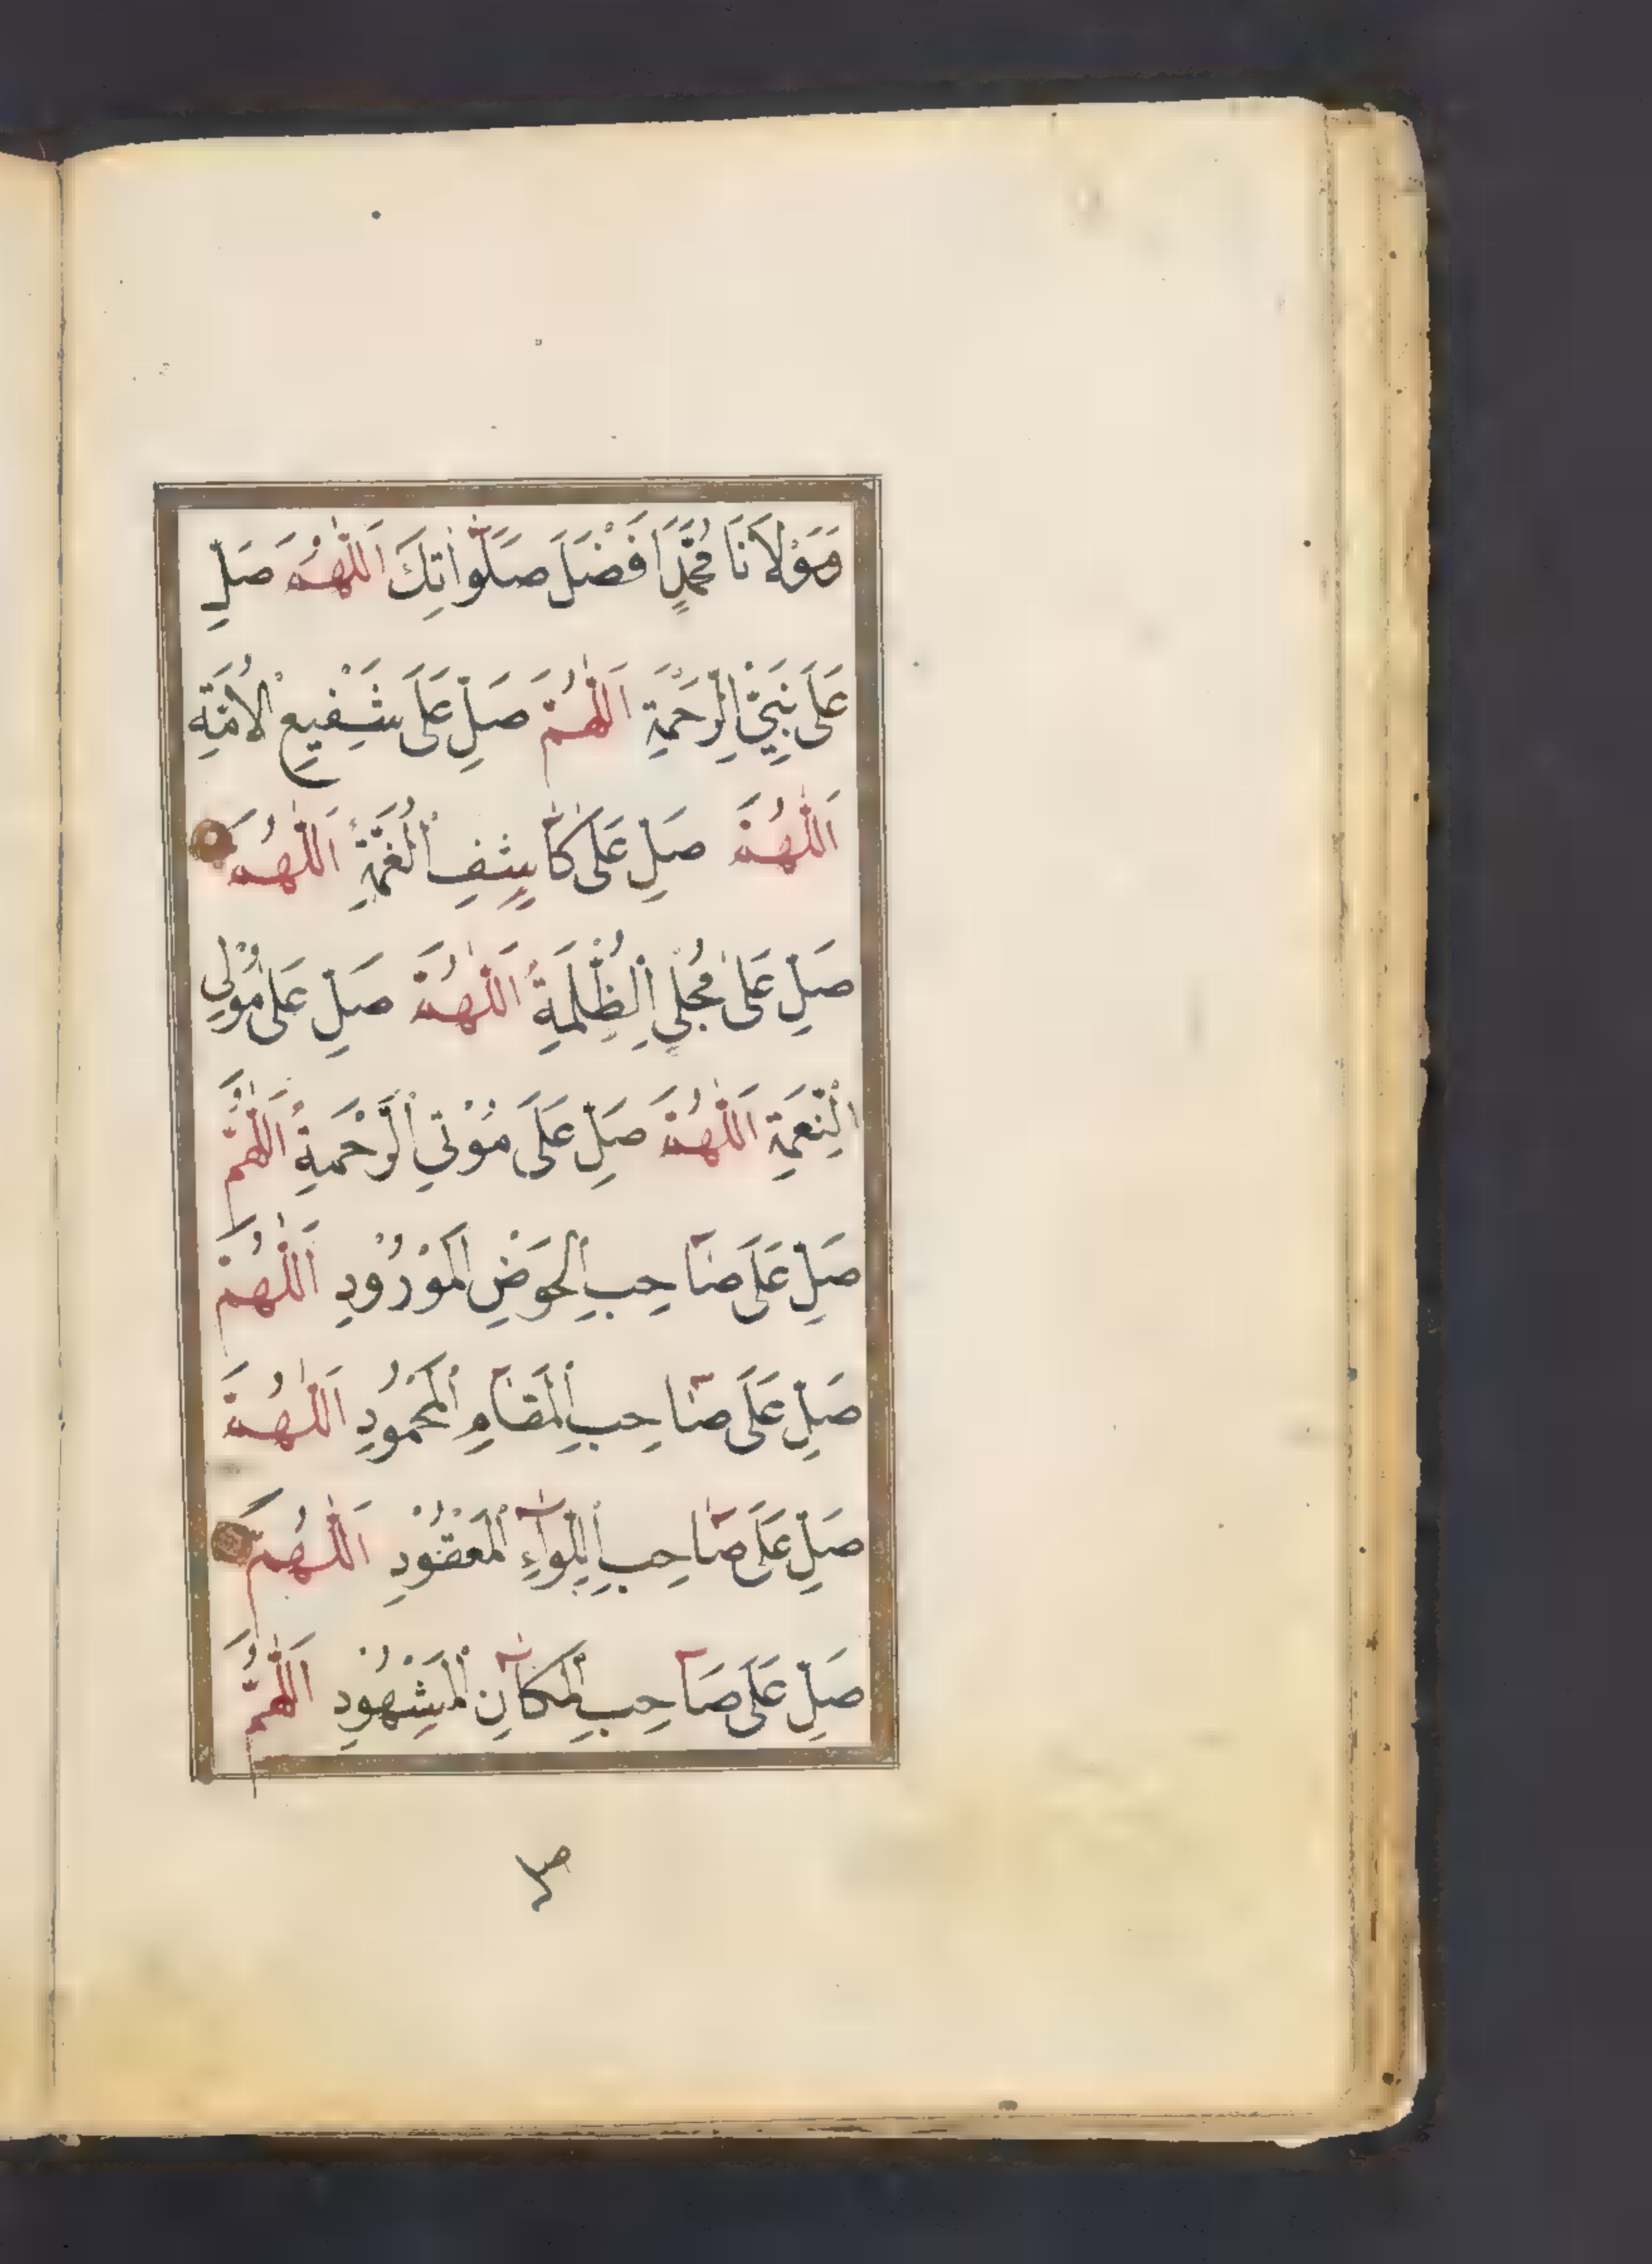 وَمَوْلَانَا مُحَمَّدٍ اَفْضَلَ صَلَوَاتِكَ اَللّٰهُمَّ صَلِّ
عَلَى نَبِيِّ الرَّحْمَةِ اَللّٰهُمَّ صَلِّ عَلَى شَفِيعِ الْاُمَّةِ
اَللّٰهُمَّ صَلِّ عَلَى كَاشِفِ الْغُمَّةِ اَللّٰهُمَّ
صَلِّ عَلَى مُجْلِي الظُّلْمَةِ اَللّٰهُمَّ صَلِّ عَلَى مُوْلِي
النِّعْمَةِ اَللّٰهُمَّ صَلِّ عَلَى مُؤْتِي الرَّحْمَةِ اَللّٰهُمَّ
صَلِّ عَلَى صَاحِبِ الْحَوْضِ الْمَوْرُوْدِ اَللّٰهُمَّ
صَلِّ عَلَى صَاحِبِ الْمَقَامِ الْمَحْمُوْدِ اَللّٰهُمَّ
صَلِّ عَلَى صَاحِبِ اللِّوَاءِ الْمَعْقُوْدِ اَللّٰهُمَّ
صَلِّ عَلَى صَاحِبِ الْمَكَانِ الْمَشْهُوْدِ اَللّٰهُمَّ
صل